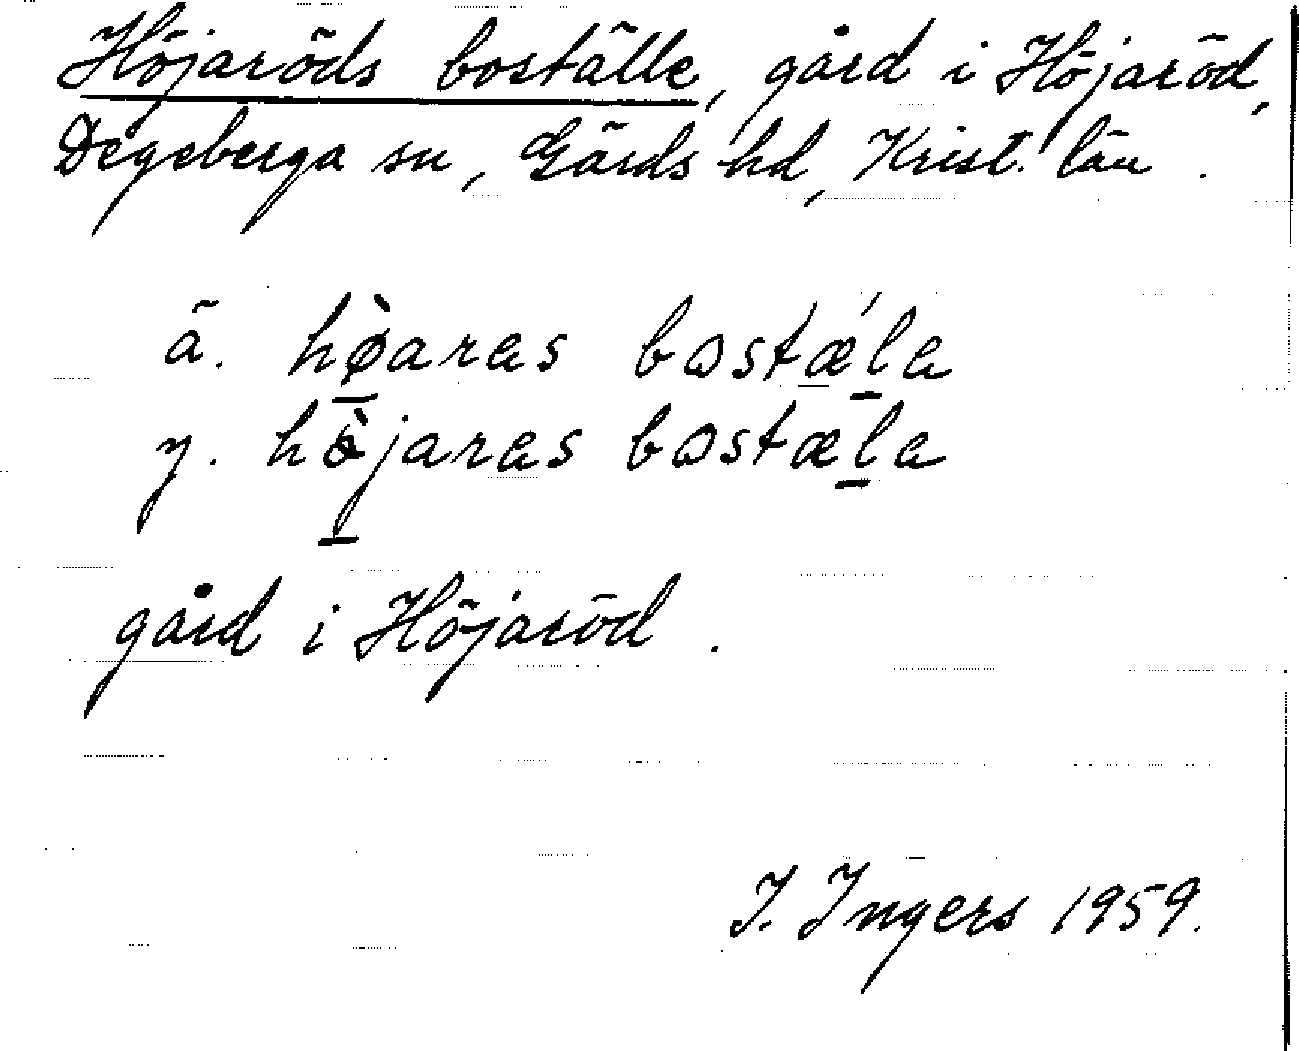 Höjaröds boställe, gård i Höjaröd,
Degeberga sn, Gärds hd, Krist. län.
ä. hø̀aras bostǽla
y. hö̀jaras bostæla
gård i Höjaröd.
I. Ingers 1959.